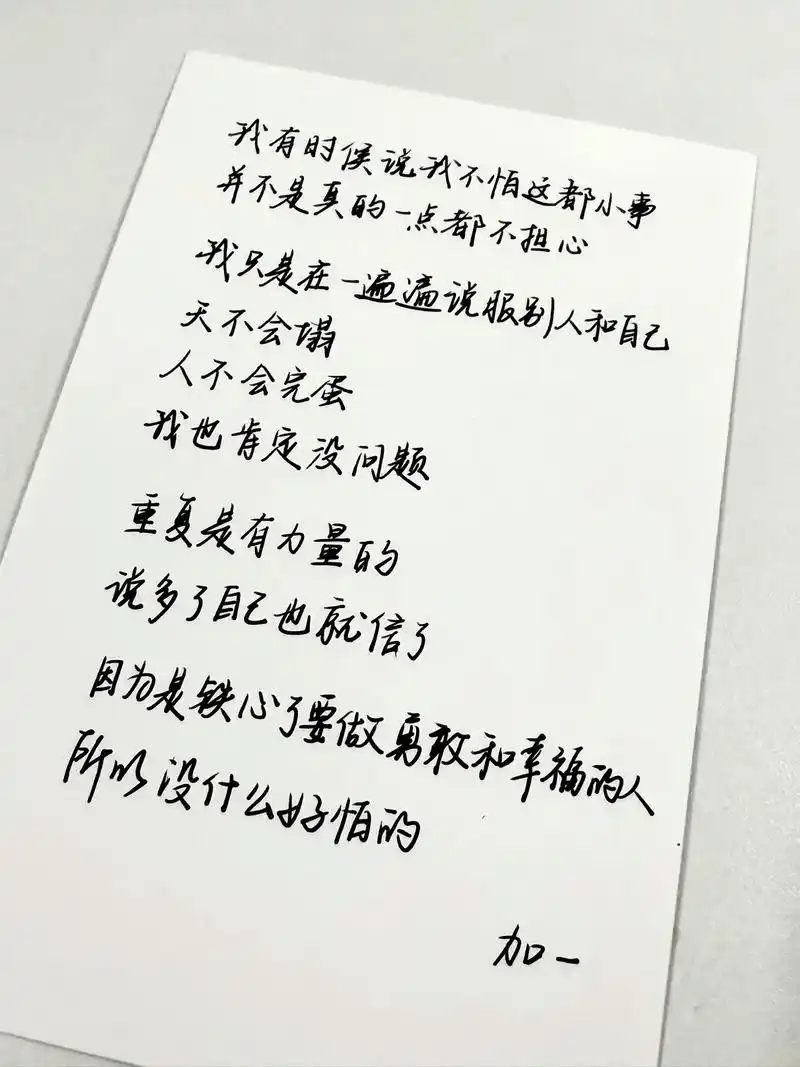 我有时候说我不怕这都小事
并不是真的一点都不担心
我只是在一遍遍说服别人和自己
天不会塌
人不会完蛋
我也肯定没问题
重复是有力量的
说多了自己也就信了
因为是铁心了要做勇敢和幸福的人
所以没什么好怕的
加一